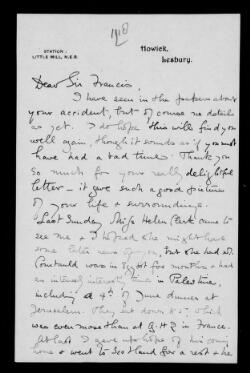 1918
STATION:
LITTLE MILL, N.E.R.
Howick,
Lesbury.
Dear Sir Francis,
I have seen in the papers about
your accident, but of course no details
as yet. I do hope this will find you
well again, though it sounds as if you must
have had a bad time. Thank you
so much for your really delightful
letter - it gave such a good picture
of your life & surroundings.
Last Sunday Miss Helen came to
see me & I hoped she might have
some later news of you, but she had not.
was in Egypt five months & had
an interesting time in Palestine,
including a 4th of June dinner at
Jerusalem. They sat down
was even more than at G.H.Q in France.
At last I gave up hope of his coming
home & went to Scotland for a rest & he